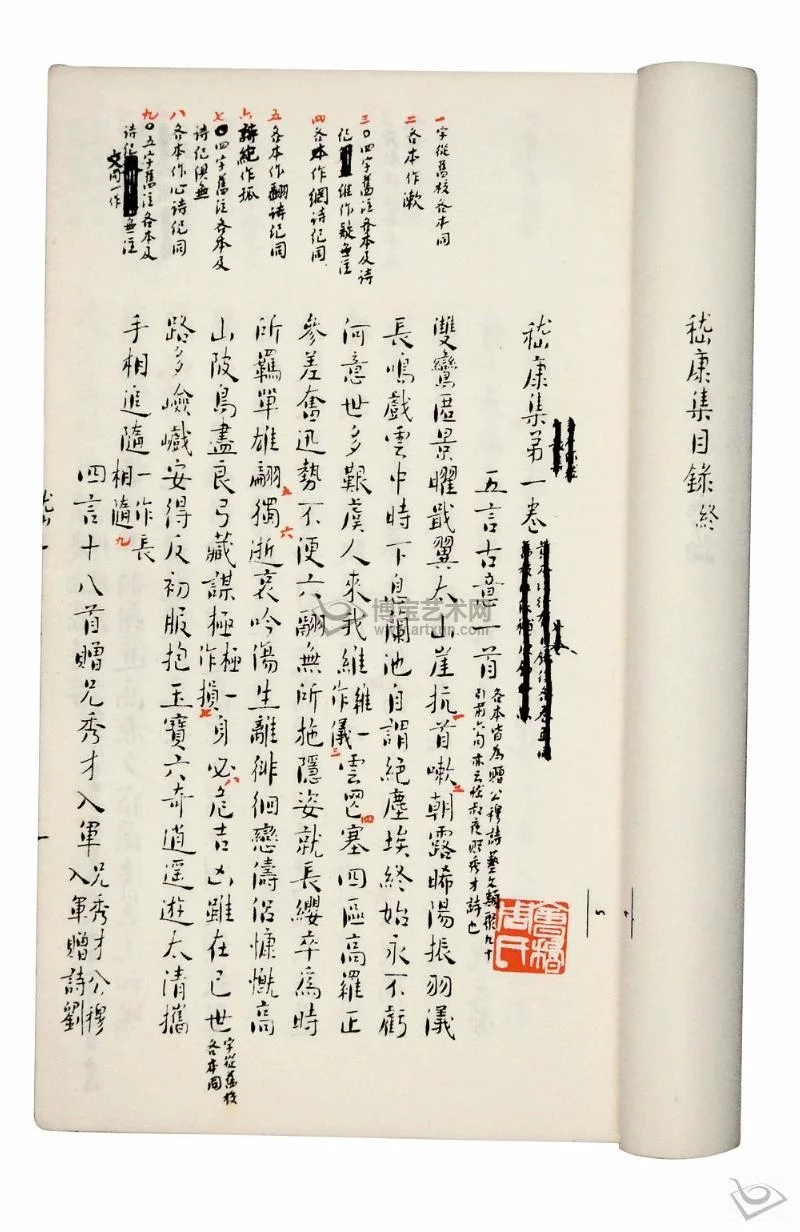 嵇康集目錄終
嵇康集第一卷
五言古意一首
各本皆為贈公穆詩藝文類聚九十
引前六句亦云嵇叔夜贈秀才詩也
雙鸞匿景曜戢翼太山崖抗一首嗽二朝露晞陽振羽儀
長鳴戲雲中時下息蘭池自謂絕塵埃終始永不虧
何意世多艱虞人來我維維一作儀三雲罔四塞四區高羅正
參差奮迅勢不便六翮無所施隱姿就長纓卒為時
所羈單雄翩五獨六逝哀吟傷生離徘徊戀儔侶慷慨高
山陂鳥盡良弓藏謀極極一作損七身必八危吉凶雖在己世
字從舊校
各本同
路多嶮巇安得反初服抱玉寶六奇逍遥遊太清攜
手相追隨一作長相隨九
四言十八首贈兄秀才入軍
兄秀才公穆
入軍贈詩劉
一 字從舊校各本同
二 各本作漱
三 〇四字舊注各本及詩
紀維作疑無注
四 各本作網詩紀同
五 各本作翻詩紀同
六 詩紀作孤
七 〇四字舊注各本及
詩紀俱無
八 各本作心詩紀同
九 〇五字舊注各本及
詩紀無注
文同一作
嵇一
會稽周氏
博宝艺术网
www.artxun.com